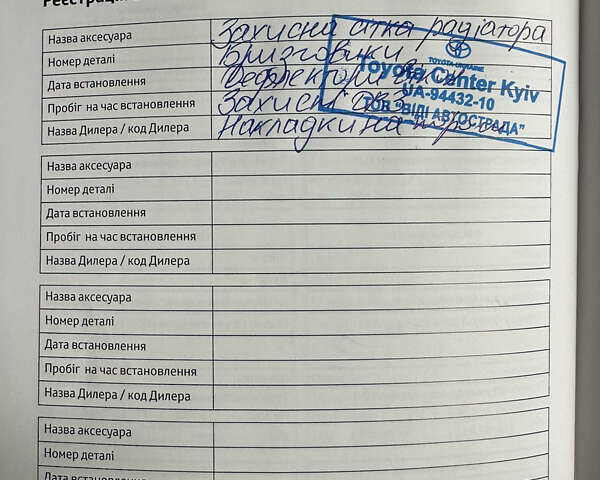 Назва аксесуара Захисна сітка радіатора
Номер деталі Бризговики
TOYOTA UKRAINE
Дата встановлення Дефлектори
Toyota Center Kyiv
UA-94432-10
Пробіг на час встановлення Захист
ТОВ "ВІДІ АВТОСТРАДА"
Назва Дилера / код Дилера Накладки на
Назва аксесуара
Номер деталі
Дата встановлення
Пробіг на час встановлення
Назва Дилера / код Дилера
Назва аксесуара
Номер деталі
Дата встановлення
Пробіг на час встановлення
Назва Дилера / код Дилера
Назва аксесуара
Номер деталі
Дата встановлення